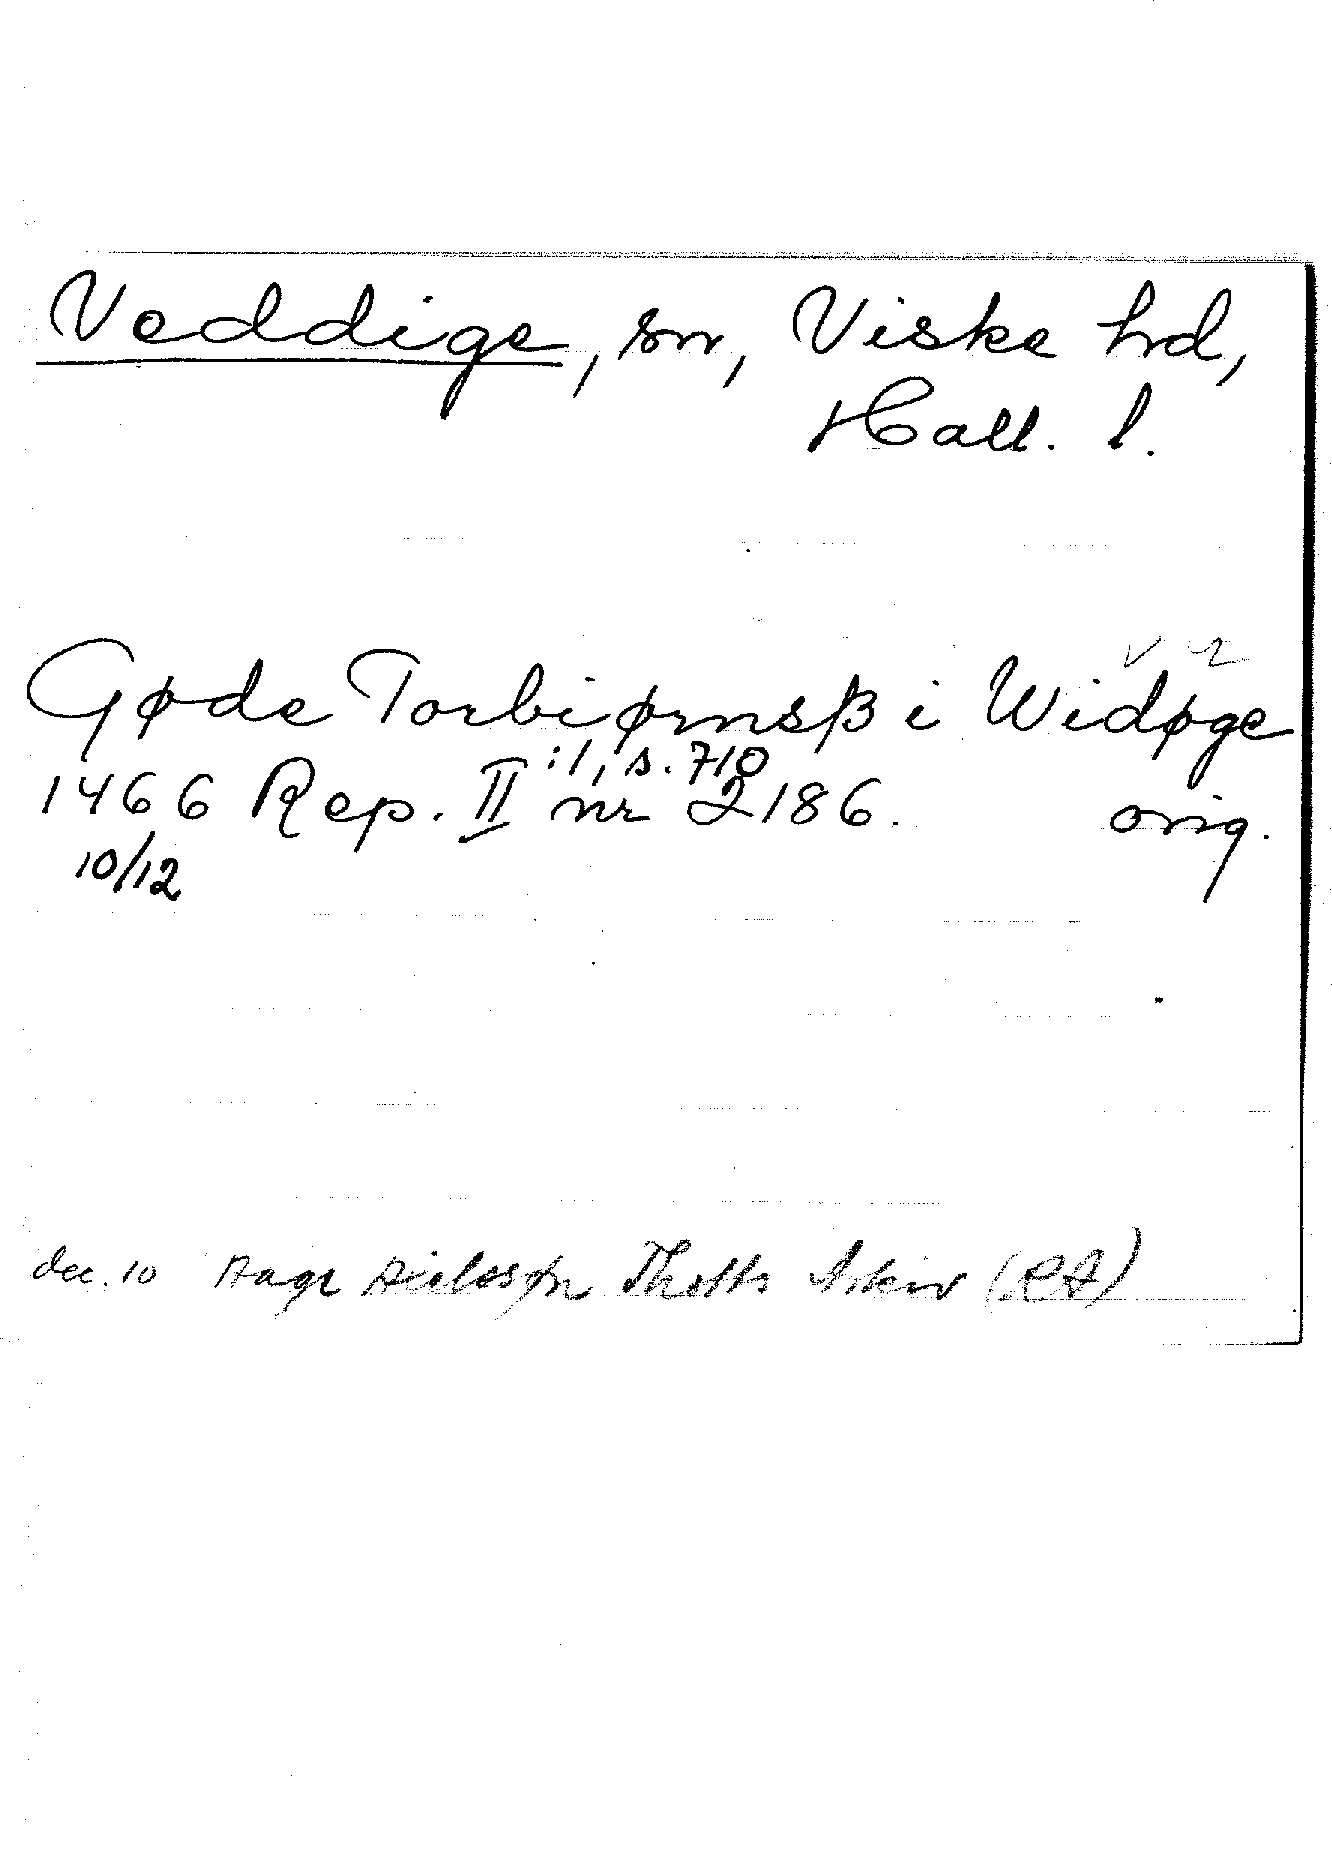 Veddige, sn, Viske hd,
Hall. l.
Gøde Torbiørnsß i Widøge
1466 Rep. II :1, s. 710 nr 2186. orig.
10/12
dec. 10 Aage Axelsøn Thotts Arkiv (RA)